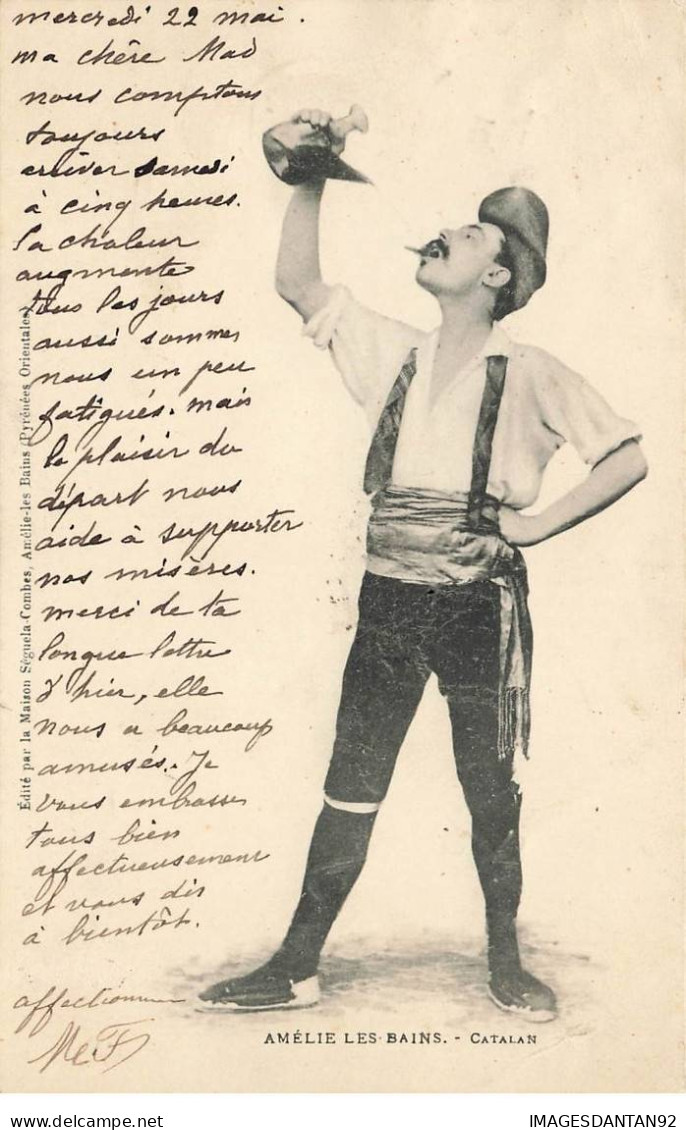 mercredi 22 mai.
ma chère Mad
nous comptons
toujours
arriver samedi
à cinq heures.
La chaleur
augmente
tous les jours
aussi sommes
nous un peu
fatigués. mais
le plaisir du
départ nous
aide à supporter
nos misères.
merci de ta
longue lettre
d'hier, elle
nous a beaucoup
amusés. Je
vous embrasse
tous bien
affectueusement
et vous dis
à bientôt.
Édité par la Maison Séguela-Combes, Amélie-les Bains (Pyrénées Orientales)
AMÉLIE LES BAINS. - CATALAN
DELCAMPE.NET
IMAGESDANTAN92